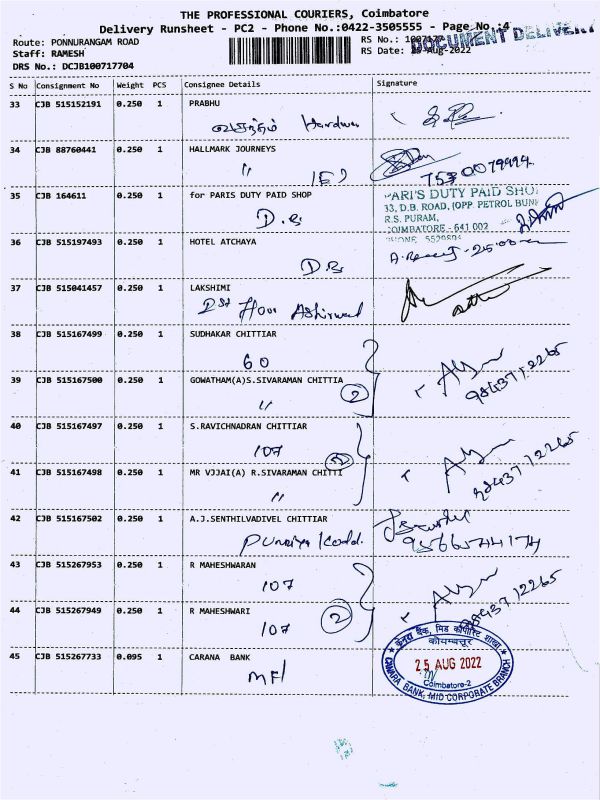 THE PROFESSIONAL COURIERS, Coimbatore
Delivery Runsheet - PC2 - Phone No.:0422-3505555 - Page No.:4
Route: PONNURANGAM ROAD
RS No.:
DOCUMENT DELIVERY
Staff: RAMESH
RS Date: 25-Aug-2022
DRS No.: DCJB100717704
S No Consignment No Weight PCS Consignee Details Signature
33 CJB 515152191 0.250 1 PRABHU
வசந்தம்
34 CJB 88760441 0.250 1 HALLMARK JOURNEYS
"
35 CJB 164611 0.250 1 for PARIS DUTY PAID SHOP
D.B
PARI'S DUTY PAID SHOP
33, D.B. ROAD, (OPP. PETROL BUNK
R.S. PURAM,
COIMBATORE - 641 002
PHONE
36 CJB 515197493 0.250 1 HOTEL ATCHAYA
D.B
37 CJB 515041457 0.250 1 LAKSHIMI
Floor
38 CJB 515167499 0.250 1 SUDHAKAR CHITTIAR
60
9843712265
39 CJB 515167500 0.250 1 GOWATHAM(A)S.SIVARAMAN CHITTIA
"
2
40 CJB 515167497 0.250 1 S.RAVICHNADRAN CHITTIAR
107
9843712265
41 CJB 515167498 0.250 1 MR VJJAI(A) R.SIVARAMAN CHITTI
"
42 CJB 515167502 0.250 1 A.J.SENTHILVADIVEL CHITTIAR
9566574174
43 CJB 515267953 0.250 1 R MAHESHWARAN
107
9843712265
44 CJB 515267949 0.250 1 R MAHESHWARI
107
2
45 CJB 515267733 0.095 1 CARANA BANK
केनरा बैंक, मिड कॉर्पोरेट शाखा
कोयम्बत्तूर
25 AUG 2022
Coimbatore-2
CANARA BANK, MID CORPORATE BRANCH